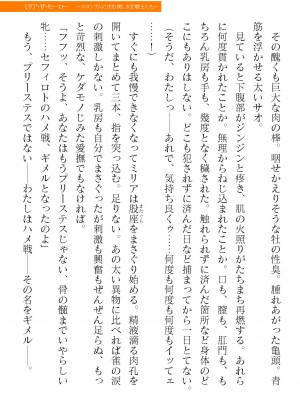 その醜くも巨大な肉の棒。咽せかえりそうな牡の性臭。腫れあがった亀頭。青
筋を浮かせる太いサオ。
見ていると下腹部がジンジンと疼き、肌の火照りがたちまち再燃する。あれら
に何度貫かれたことか。無理からねじ込まれたことか。口も、膣も、肛門も、も
ちろん乳房も手も、幾度となく穢された。触れられずに済んだ箇所など身体のど
こにもありはしない。どこも犯されずに済んだ日など捕まってから一日とてない。
（そうだ、わたしっ――あれで、気持ち良くぅ……何度も何度も何度もイッてェ
……！）
すぐにも我慢できなくなってミリアは股座をまさぐり始める。精液滴る肉孔を
開いてまとめて三本、指を突っ込む。足りない。あの太い異物に比べれば雀の涙
の刺激しかない。乳房も自分でまさぐったが刺激も興奮もぜんぜん足らぬ、もっ
と苛烈な、ケダモノじみた愛撫でもなければ――。
「フフッ、そうよ、あなたはもうプリーステスじゃない、骨の髄までいやらしい
牝……セフィロトのハメ戦、ギメルとなったのよ」
もう、プリーステスではない――わたしはハメ戦――その名をギメル――。